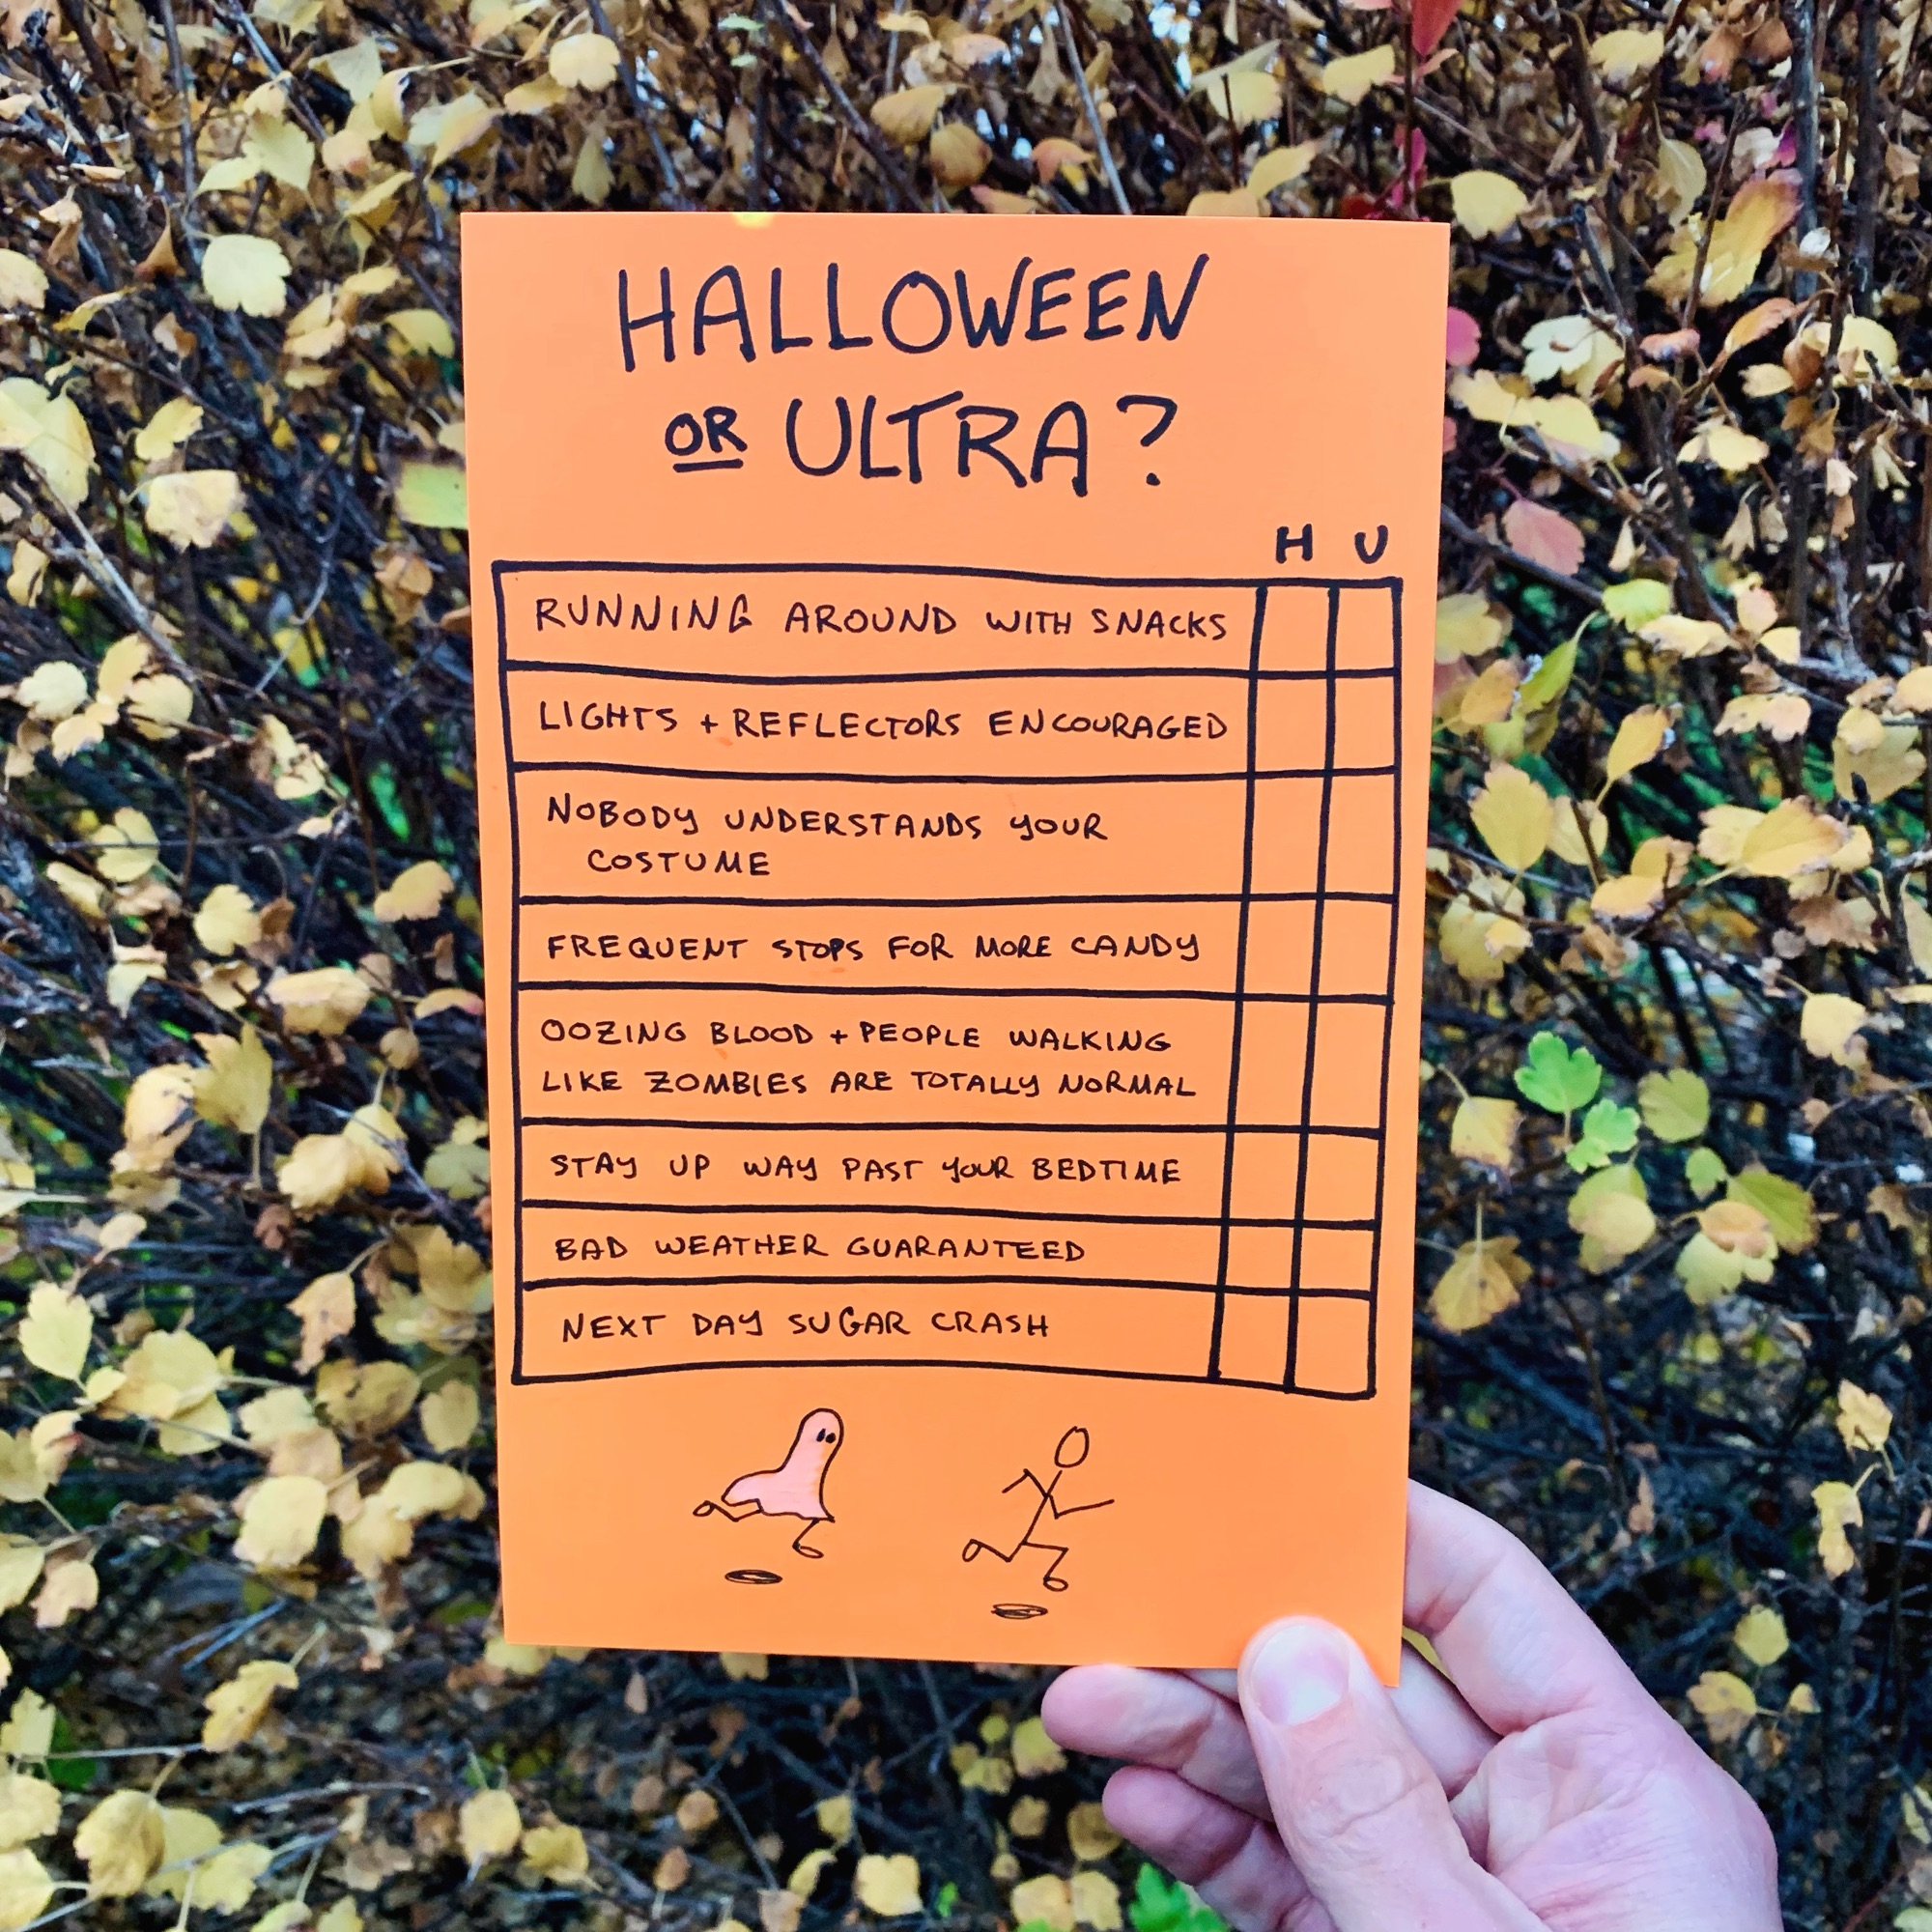 HALLOWEEN
OR ULTRA?
H U
RUNNING AROUND WITH SNACKS
LIGHTS + REFLECTORS ENCOURAGED
NOBODY UNDERSTANDS YOUR
COSTUME
FREQUENT STOPS FOR MORE CANDY
OOZING BLOOD + PEOPLE WALKING
LIKE ZOMBIES ARE TOTALLY NORMAL
STAY UP WAY PAST YOUR BEDTIME
BAD WEATHER GUARANTEED
NEXT DAY SUGAR CRASH